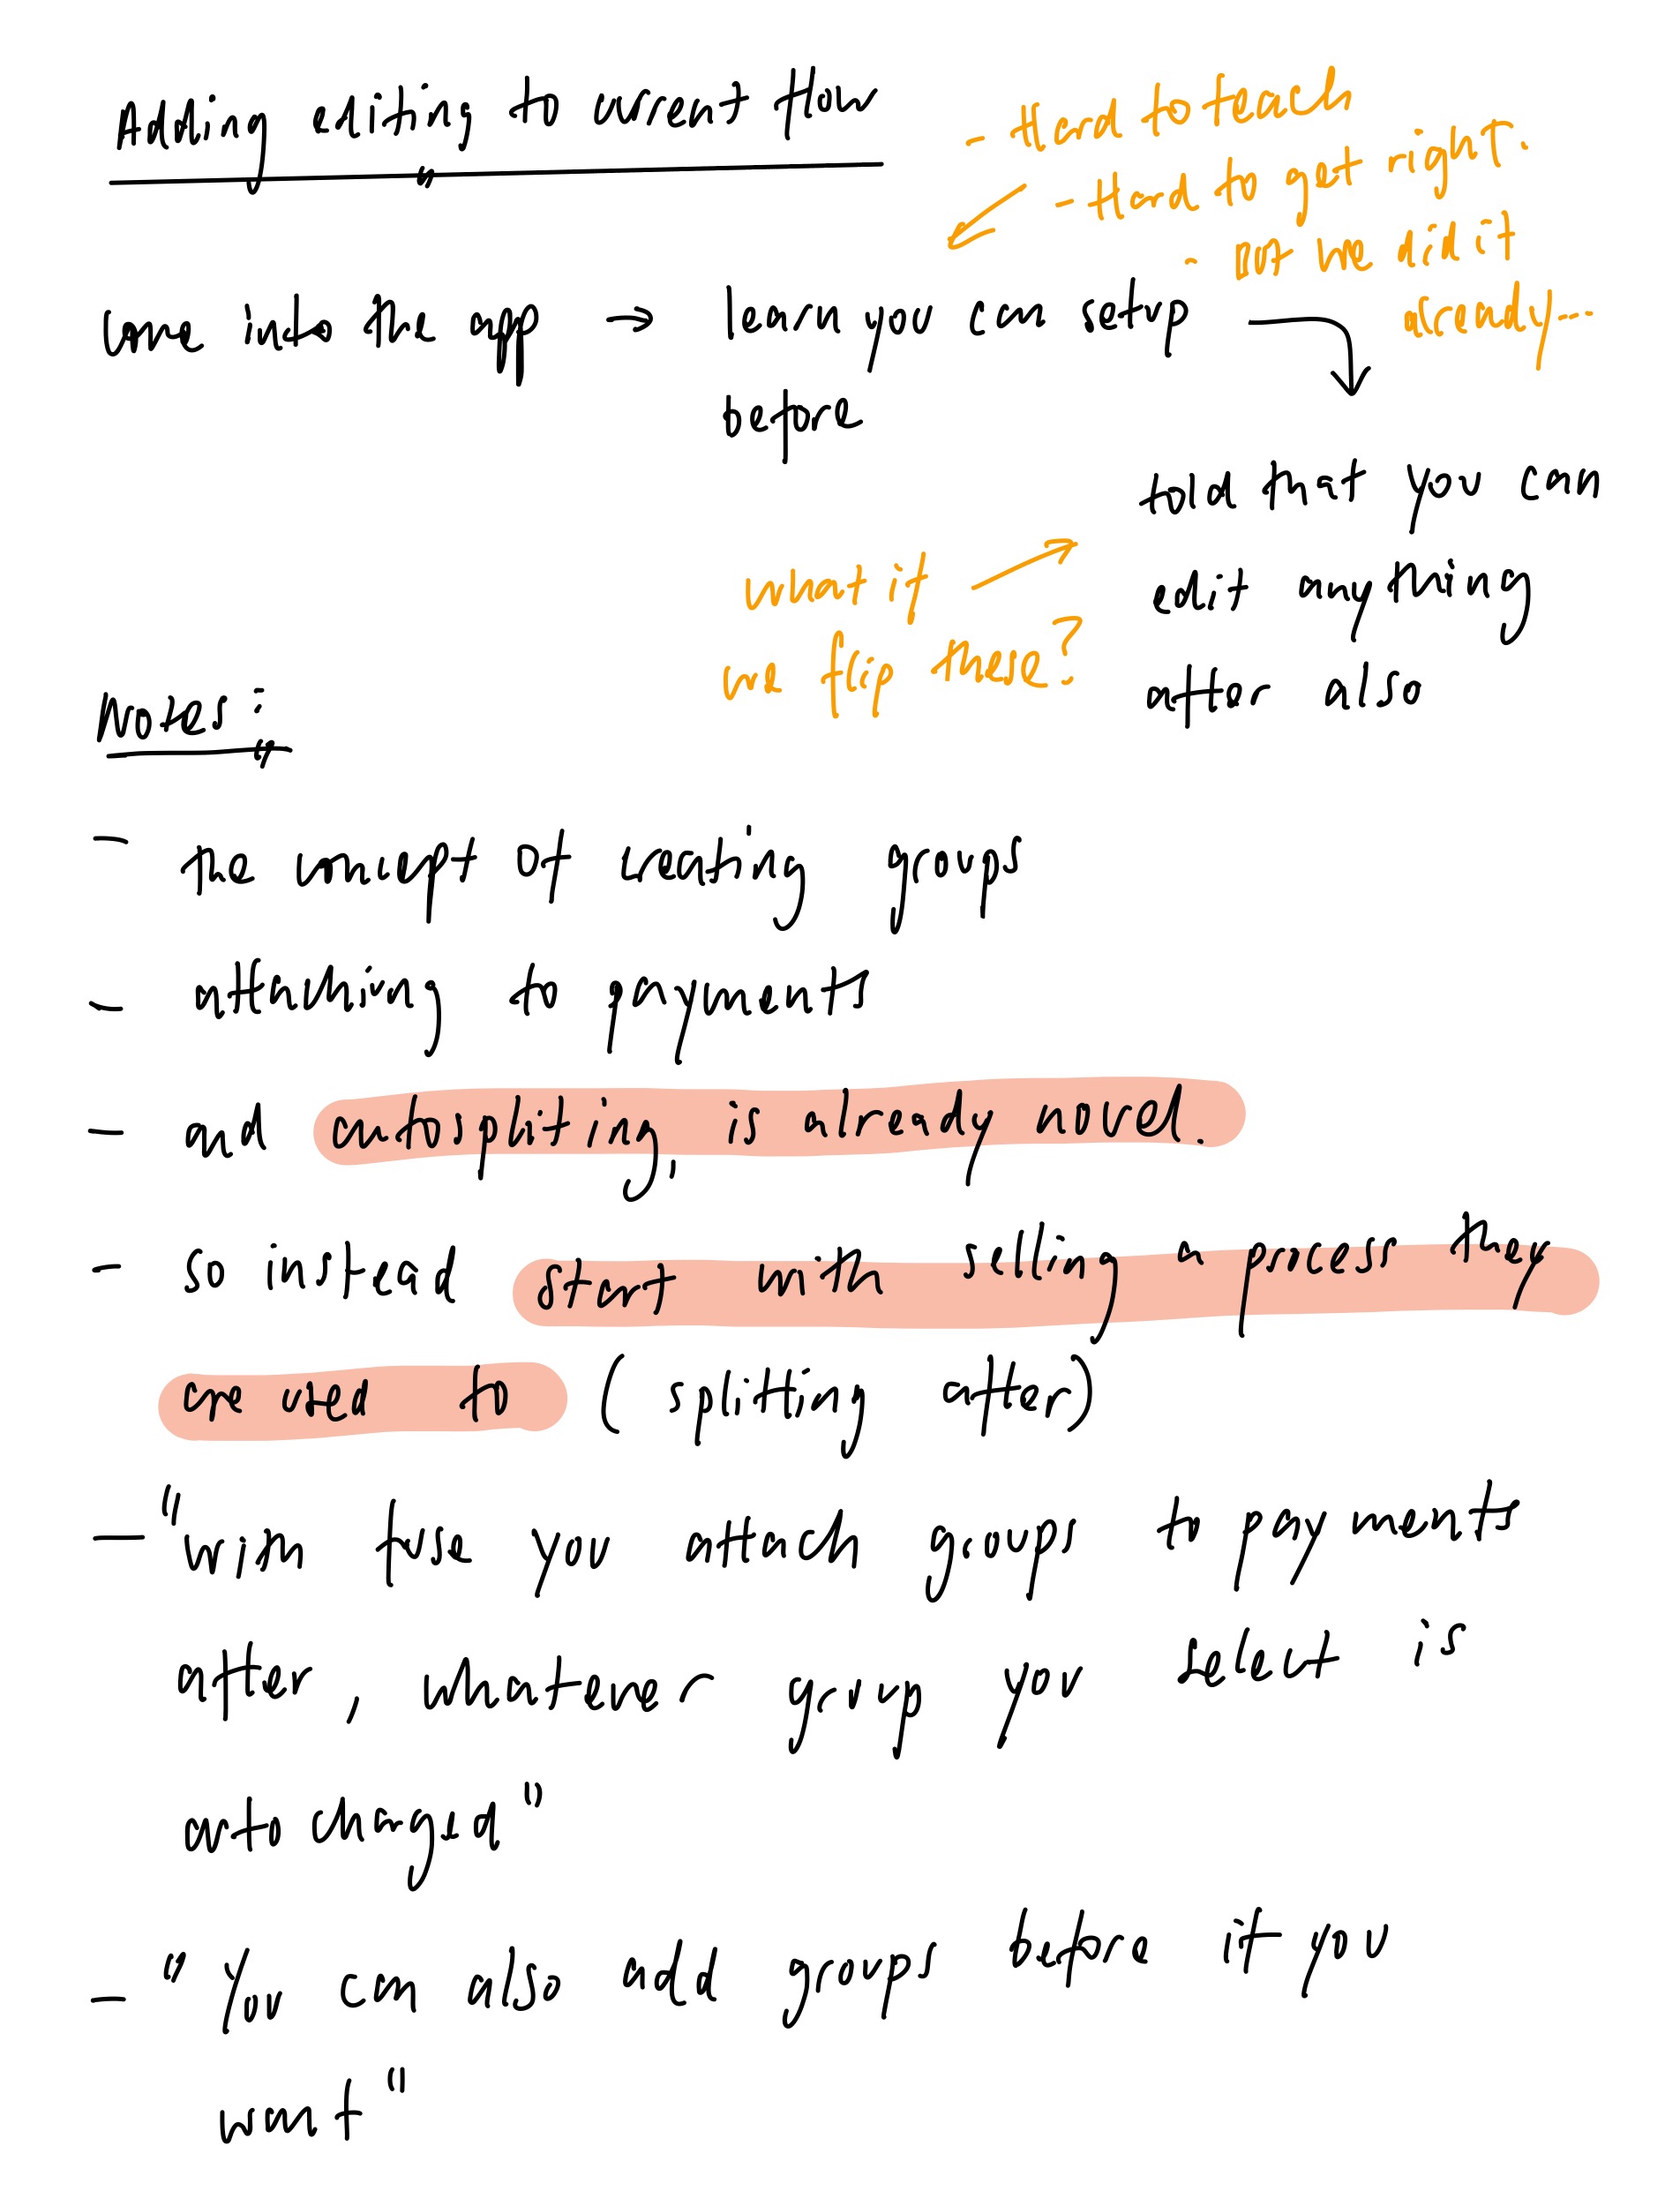 Adding editing to current flow
- Hard to teach
- Hard to get right.
- BUT we did it
already....
come into the app → learn you can setup
before
told that you can
edit anything
after also
what if
we flip these?
Notes:
- the concept of creating groups
- attaching to payments
- and autospliting, is already novel.
- so instead start with selling a process they
are used to (splitting after)
- "with fuse you attach groups to payments
after, whatever group you select is
auto charged"
- "You can also add groups before if you
want"